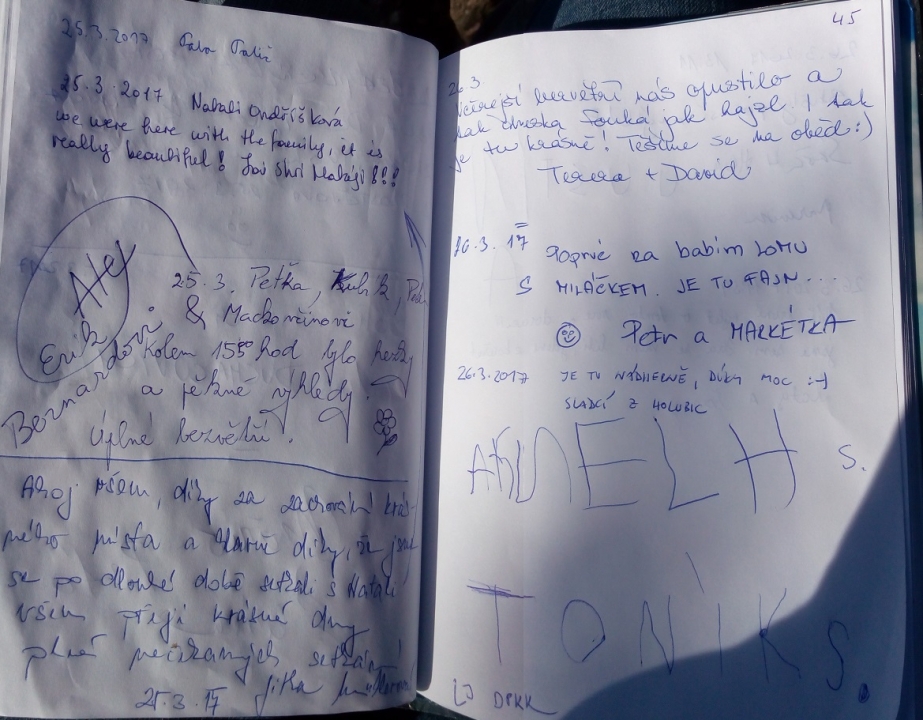 25.3.2017
25.3.2017 Natali Ondříšková
we were here with the family, it is
really beautiful!
Alex
25.3. Peťka, Kubík,
&
Erik
kolem 15 hod bylo hezky
Bernardovi
a pěkné výhledy.
Úplné bezvětří.
Ahoj všem, díky za zachování krás-
ného místa a hlavně díky, že jsme
se po dlouhé době setkali s Natali
všem přeji krásné dny
plné nečekaných setkání!
25.3.17 Jitka
45
26.3
včerejší bezvětří nás opustilo a
tak dneska fouká jak hajzl! Tak
je tu krásně! Těšíme se na oběd :)
Tereza + David
26.3.17 POPRVÉ NA BABÍM LOMU
S MILÁČKEM. JE TU FAJN...
Petr a MARKÉTKA
26.3.2017 JE TU NÁDHERNĚ, DÍKY MOC :-)
SLADCÍ Z HOLUBIC
S.
TONÍK S.